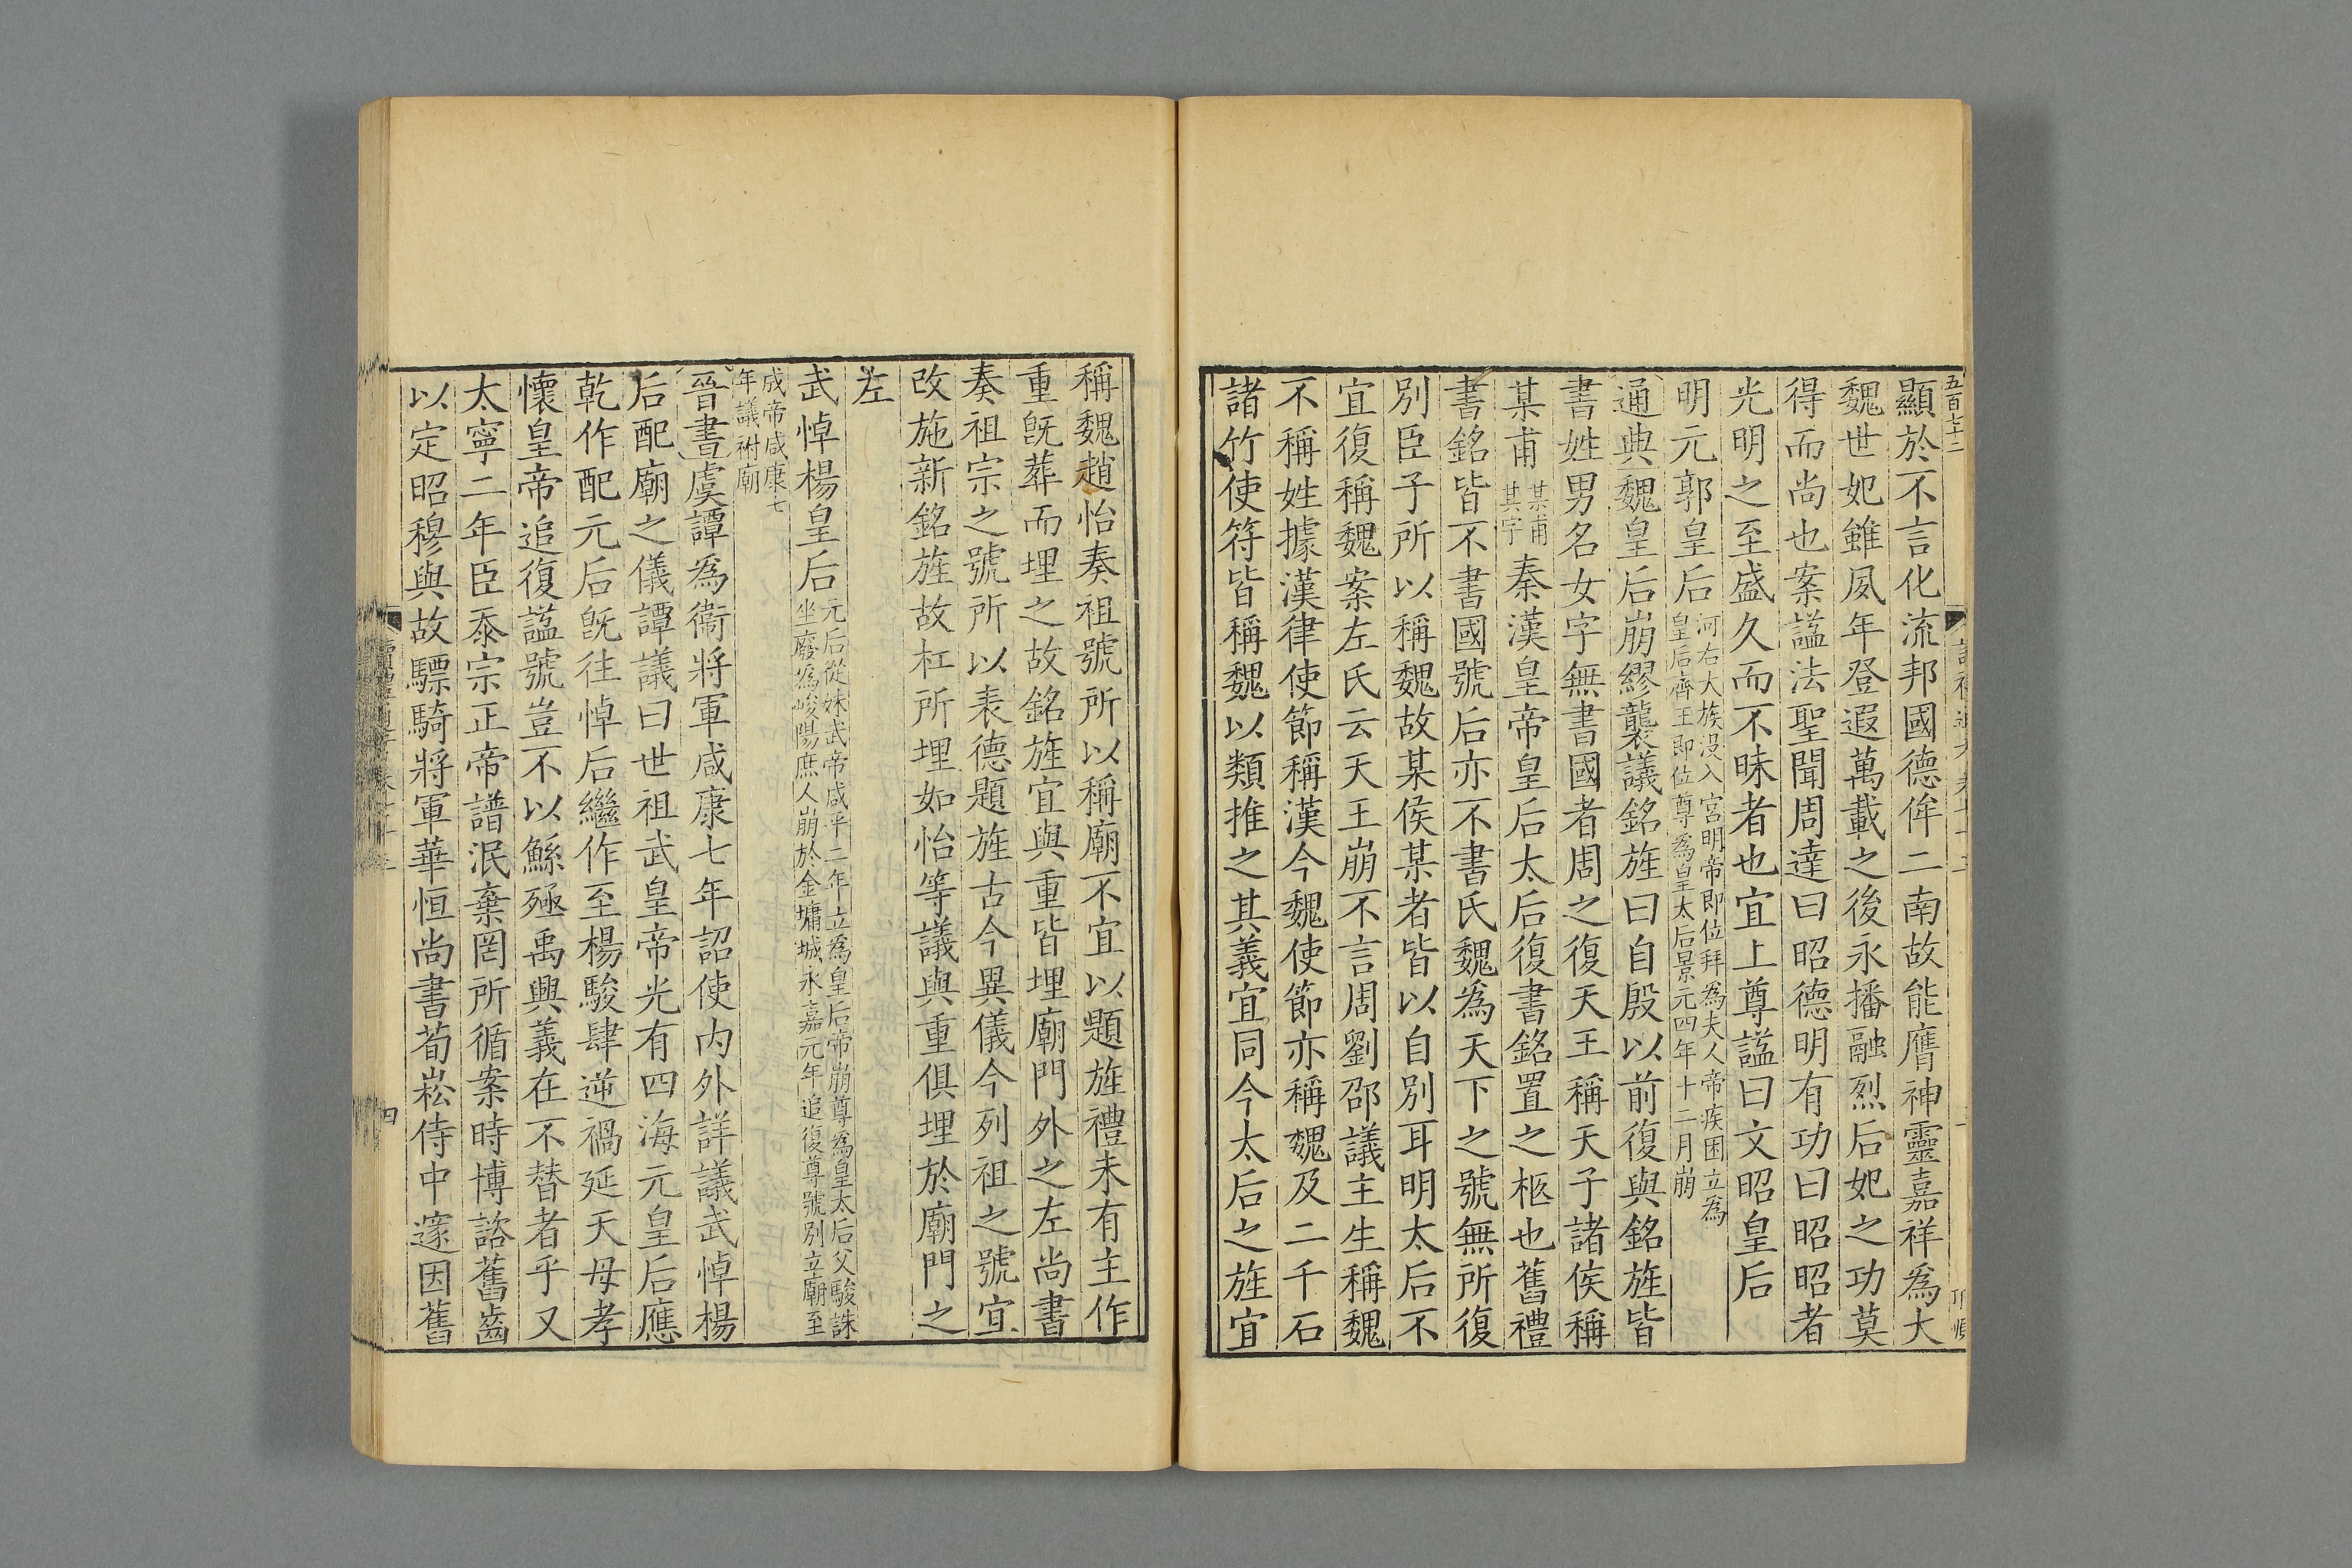 五百七十二
顯於不言化流邦國德侔二南故能膺神靈嘉祥爲大
魏世妃雖夙年登遐萬載之後永播融烈后妃之功莫
得而尚也案諡法聖聞周達曰昭德明有功曰昭昭者
光明之至盛久而不昧者也宜上尊諡曰文昭皇后
明元郭皇后河右大族没入宮明帝即位拜爲夫人帝疾困立爲
皇后齊王即位尊爲皇太后景元四年十二月崩
通典魏皇后崩繆襲議銘旌曰自殷以前復與銘旌皆
書姓男名女字無書國者周之復天王稱天子諸侯稱
某甫某甫其字秦漢皇帝皇后太后復書銘置之柩也舊禮
書銘皆不書國號后亦不書氏魏爲天下之號無所復
別臣子所以稱魏故某侯某者皆以自別耳明太后不
宜復稱魏案左氏云天王崩不言周劉邵議主生稱魏
不稱姓據漢律使節稱漢今魏使節亦稱魏及二千石
諸竹使符皆稱魏以類推之其義宜同今太后之旌宜
稱魏趙怡奏祖號所以稱廟不宜以題旌禮未有主作
重旣葬而埋之故銘旌宜與重皆埋廟門外之左尚書
奏祖宗之號所以表德題旌古今異儀今列祖之號宜
改施新銘旌故杠所埋如怡等議與重俱埋於廟門之
左
武悼楊皇后元后從妹武帝咸平二年立爲皇后帝崩尊爲皇太后父駿誅
坐廢爲峻陽庶人崩於金墉城永嘉元年追復尊號別立廟至
成帝咸康七
年議祔廟
晉書虞譚爲衞將軍咸康七年詔使内外詳議武悼楊
后配廟之儀譚議曰世祖武皇帝光有四海元皇后應
乾作配元后旣往悼后繼作至楊駿肆逆禍延天母孝
懷皇帝追復諡號豈不以鯀殛禹興義在不替者乎又
太寧二年臣忝宗正帝譜泯棄罔所循案時博諮舊齒
以定昭穆與故驃騎將軍華恒尚書荀崧侍中邃因舊
四